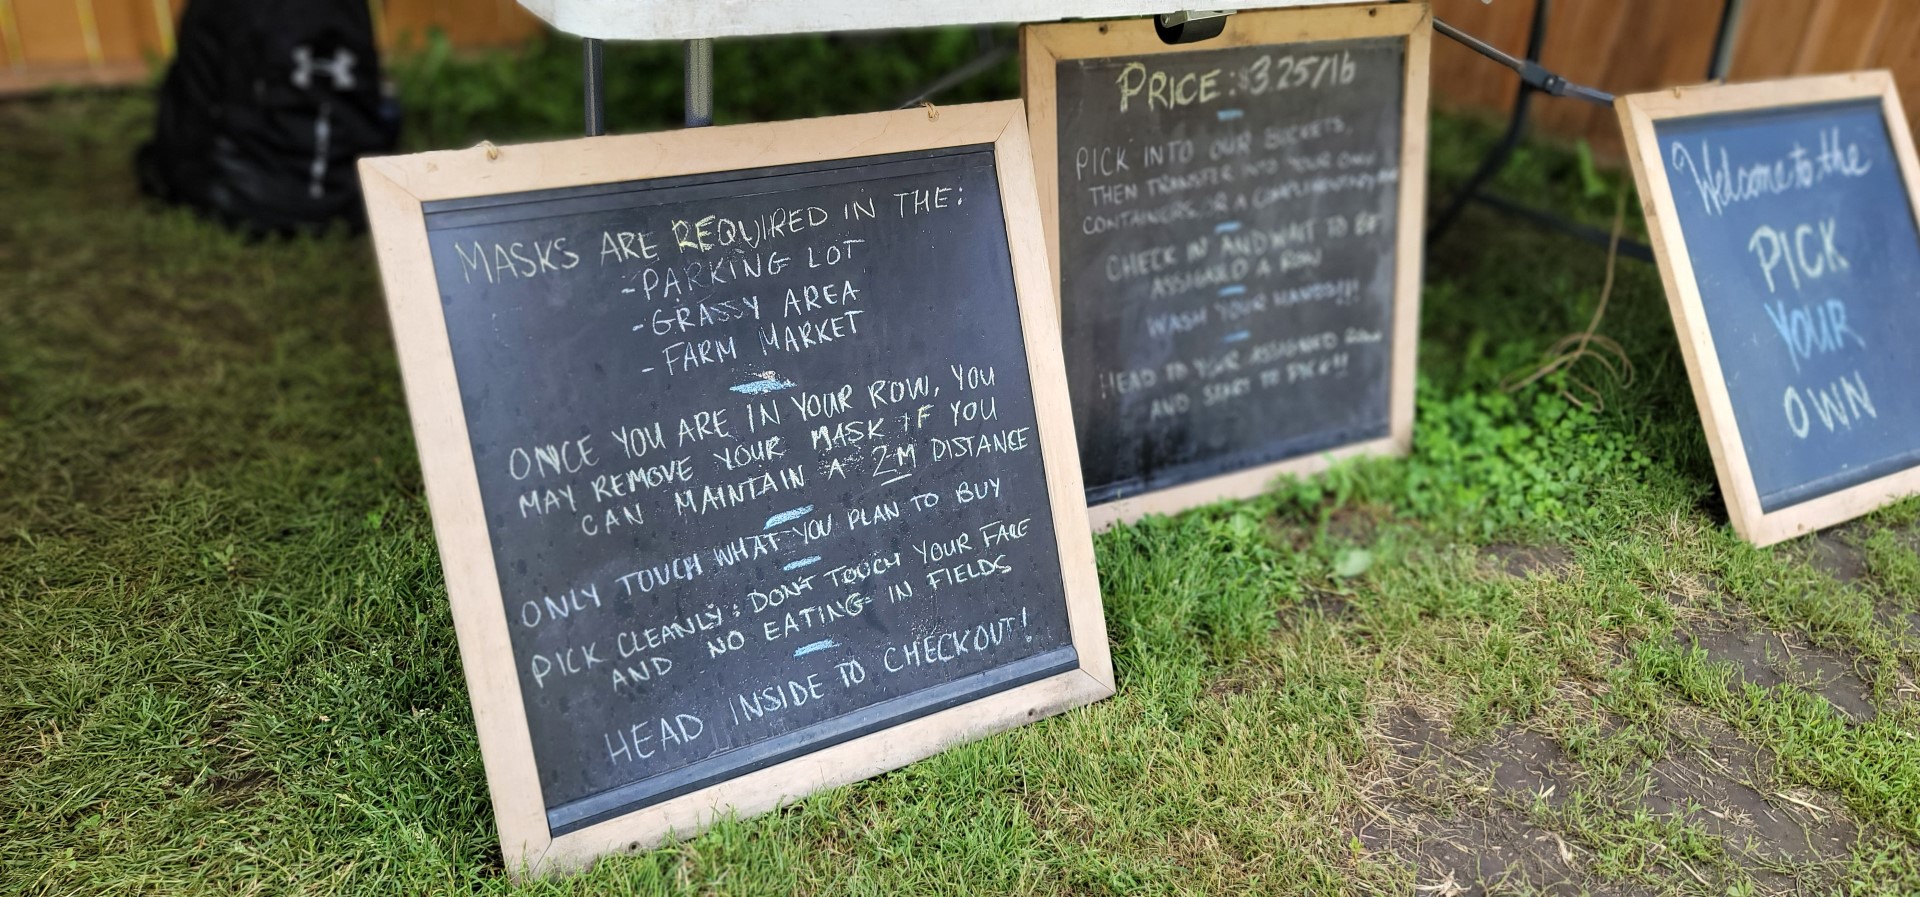 MASKS ARE REQUIRED IN THE:
-PARKING LOT
-GRASSY AREA
-FARM MARKET
ONCE YOU ARE IN YOUR ROW, YOU
MAY REMOVE YOUR MASK IF YOU
CAN MAINTAIN A 2M DISTANCE
ONLY TOUCH WHAT YOU PLAN TO BUY
PICK CLEANLY: DON'T TOUCH YOUR FACE
AND NO EATING IN FIELDS
HEAD INSIDE TO CHECKOUT!
PRICE: $3.25/lb
PICK INTO OUR BUCKETS,
THEN TRANSFER INTO YOUR OWN
CONTAINERS OR A COMPLIMENTARY
CHECK IN AND WAIT TO BE
ASSIGNED A ROW
WASH YOUR HANDS!!!
HEAD TO YOUR ASSIGNED ROW
AND START TO PICK!!
Welcome to the
PICK
YOUR
OWN